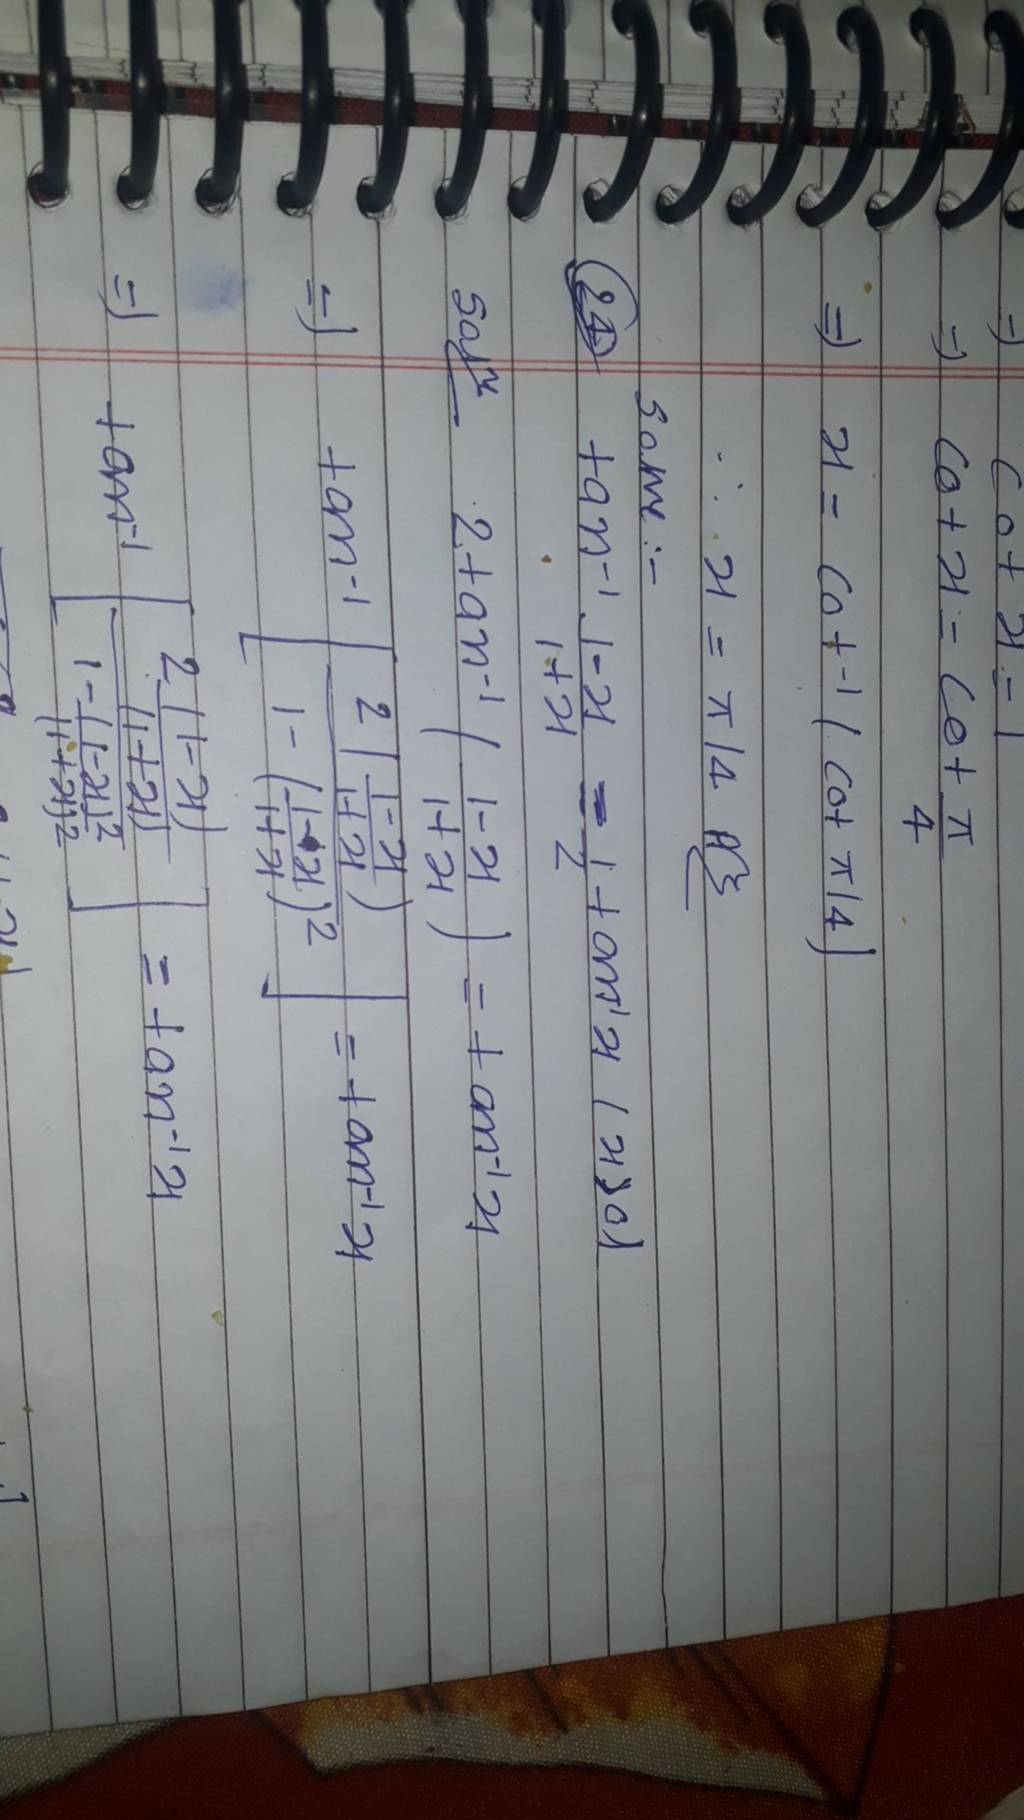 =) cot x = 1
=) cot x = cot π/4
=) x = cot⁻¹ (cot π/4)
∴ x = π/4
Solve :-
(21) tan⁻¹ (1-x)/(1+x) = 1/2 tan⁻¹ x (x>0)
Solⁿ 2 tan⁻¹ ( (1-x)/(1+x) ) = tan⁻¹ x
=) tan⁻¹ [ 2 ( (1-x)/(1+x) ) / 1 - ( (1-x)/(1+x) )² ] = tan⁻¹ x
=) tan⁻¹ [ 2 (1-x)/(1+x) / 1 - (1-x)²/(1+x)² ] = tan⁻¹ x